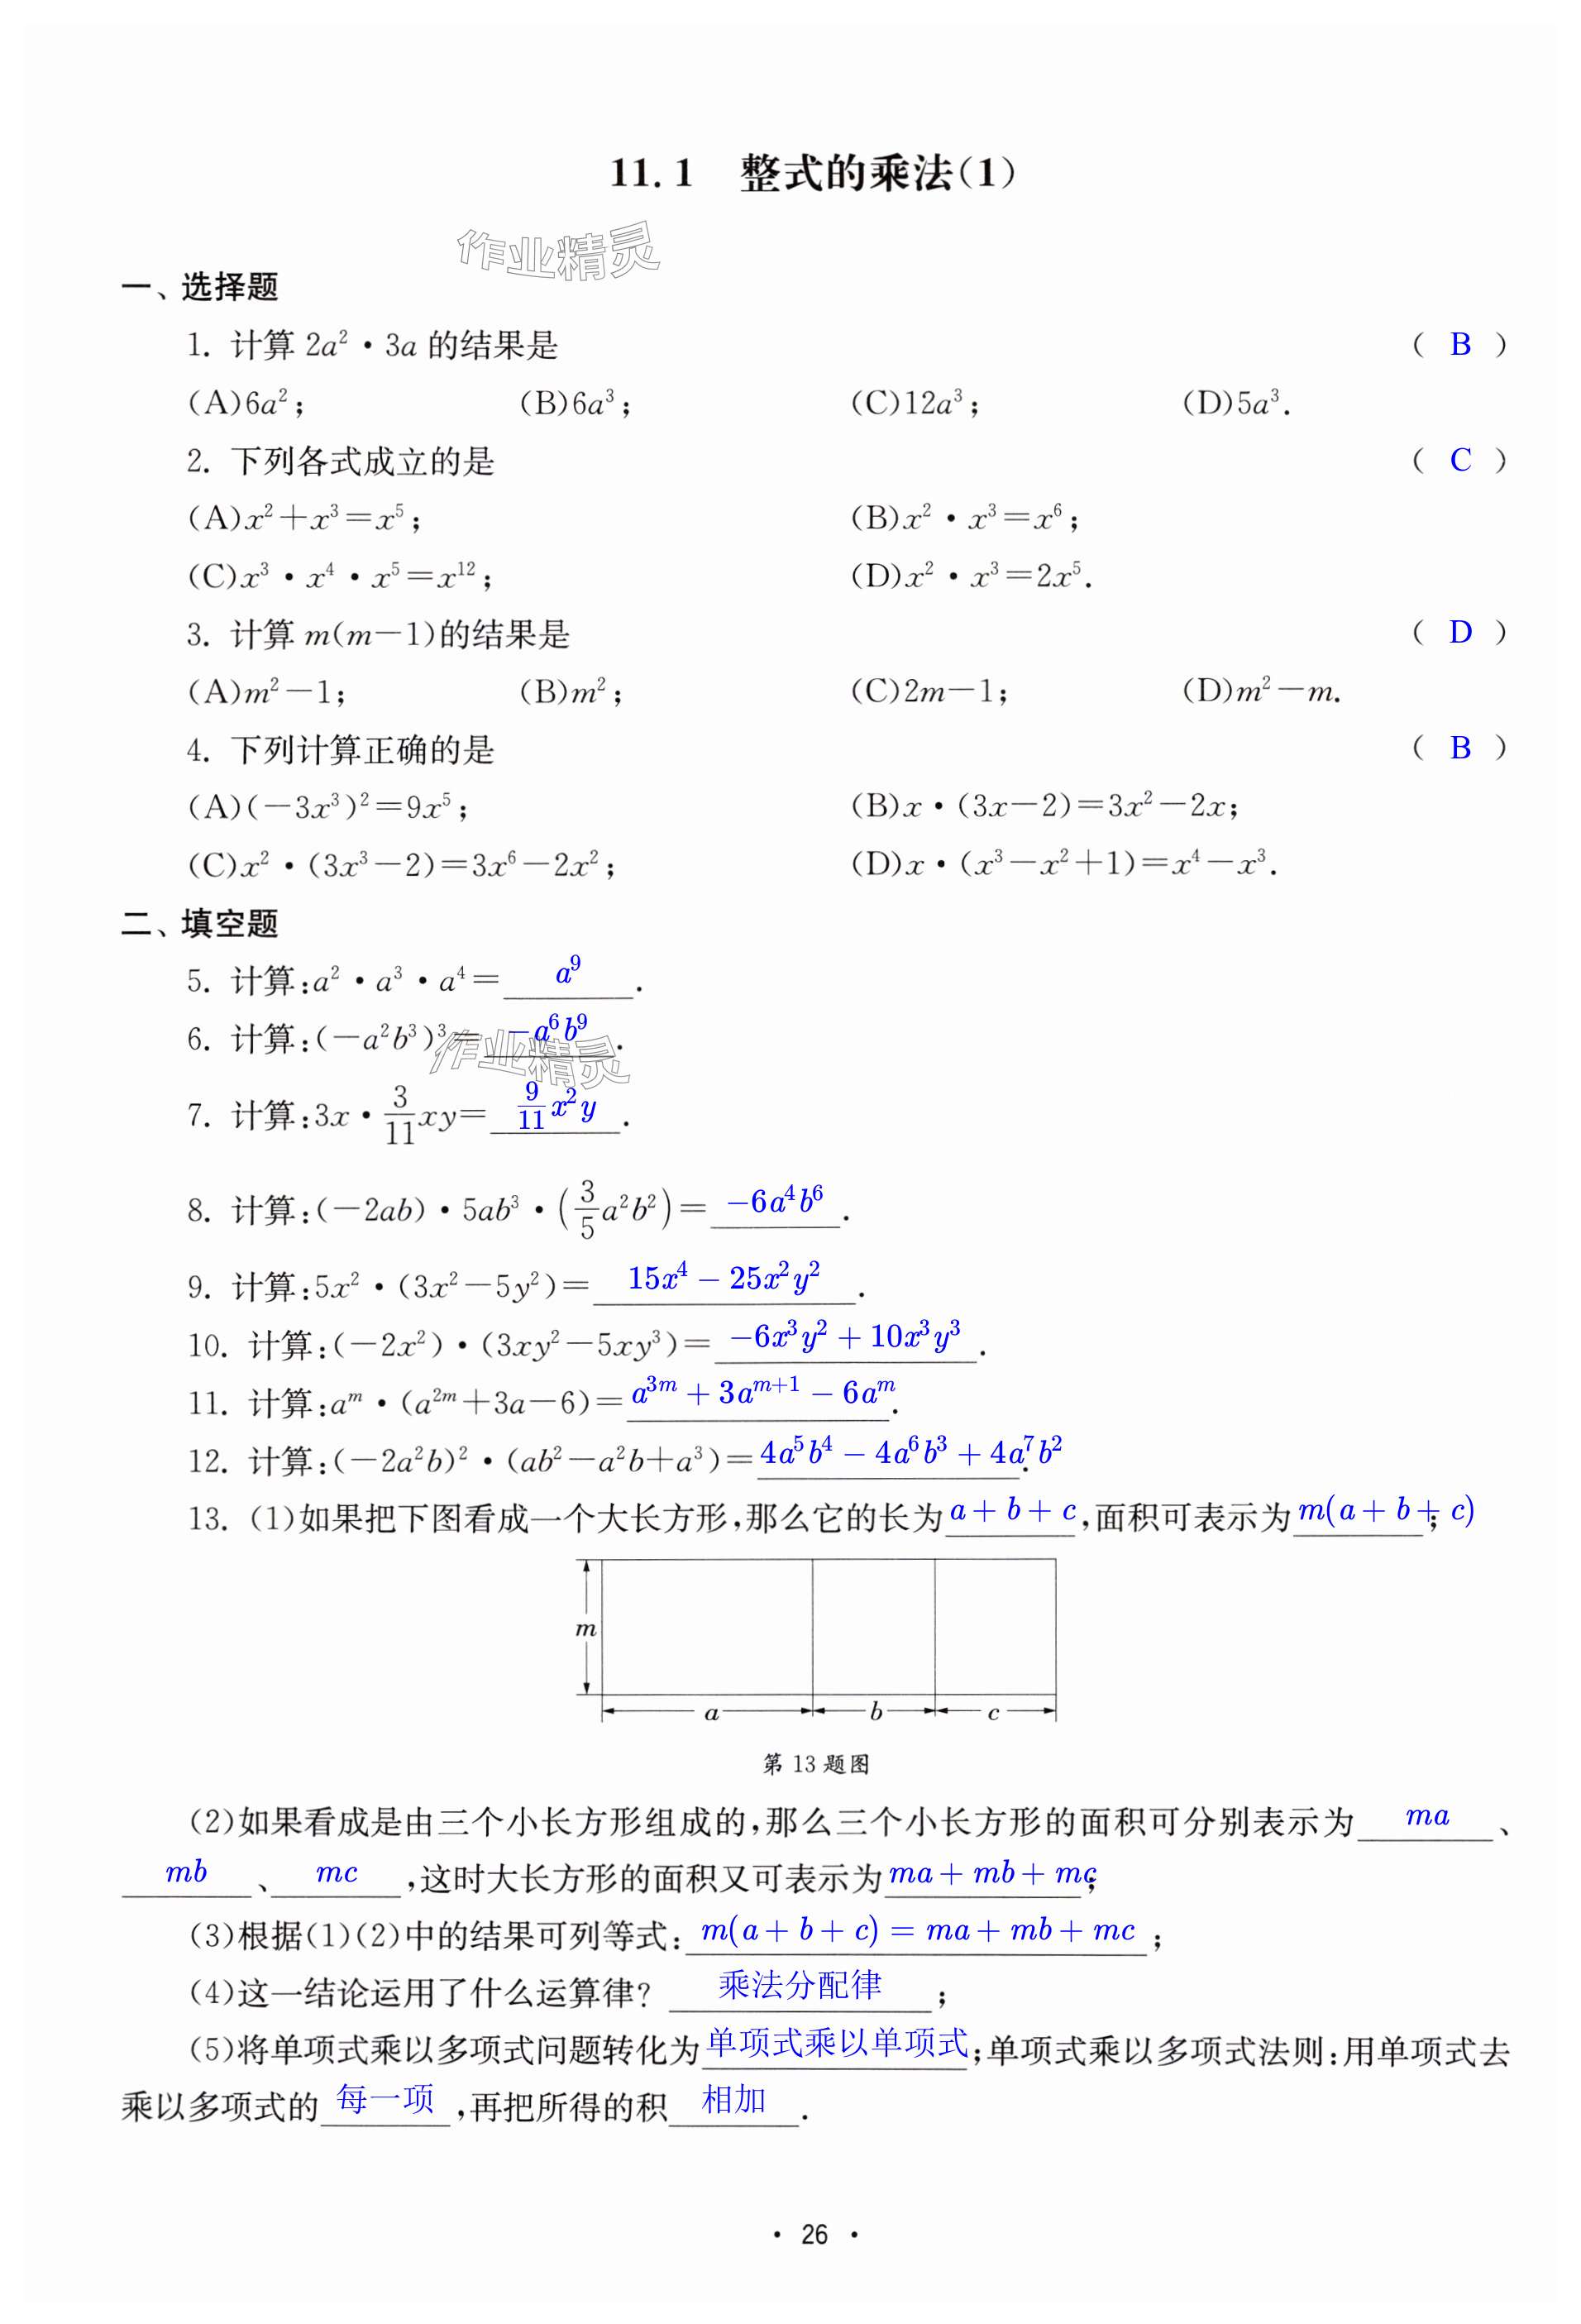 11.1 整式的乘法(1)
作业精灵
一、选择题
1. 计算 2a²·3a 的结果是 ( B )
(A)6a²; (B)6a³; (C)12a³; (D)5a³.
2. 下列各式成立的是 ( C )
(A)x²+x³=x⁵; (B)x²·x³=x⁶;
(C)x³·x⁴·x⁵=x¹²; (D)x²·x³=2x⁵.
3. 计算 m(m-1)的结果是 ( D )
(A)m²-1; (B)m²; (C)2m-1; (D)m²-m.
4. 下列计算正确的是 ( B )
(A)(-3x³)²=9x⁵; (B)x·(3x-2)=3x²-2x;
(C)x²·(3x³-2)=3x⁶-2x²; (D)x·(x³-x²+1)=x⁴-x³.
二、填空题
5. 计算:a²·a³·a⁴= a⁹ .
6. 计算:(-a²b³)³= -a⁶b⁹ .
作业精灵
7. 计算:3x·3/11xy= 9/11x²y .
8. 计算:(-2ab)·5ab³·(3/5a²b²)= -6a⁴b⁶ .
9. 计算:5x²·(3x²-5y²)= 15x⁴-25x²y² .
10. 计算:(-2x²)·(3xy²-5xy³)= -6x³y²+10x³y³ .
11. 计算:aᵐ·(a²ᵐ+3a-6)= a³ᵐ+3aᵐ⁺¹-6aᵐ .
12. 计算:(-2a²b)²·(ab²-a²b+a³)= 4a⁵b⁴-4a⁶b³+4a⁷b² .
13. (1)如果把下图看成一个大长方形,那么它的长为 a+b+c ,面积可表示为 m(a+b+c) ;
m
a b c
第 13 题图
(2)如果看成是由三个小长方形组成的,那么三个小长方形的面积可分别表示为 ma 、
mb 、 mc ,这时大长方形的面积又可表示为 ma+mb+mc ;
(3)根据(1)(2)中的结果可列等式: m(a+b+c)=ma+mb+mc ;
(4)这一结论运用了什么运算律? 乘法分配律 ;
(5)将单项式乘以多项式问题转化为 单项式乘以单项式 ;单项式乘以多项式法则:用单项式去
乘以多项式的 每一项 ,再把所得的积 相加 .
· 26 ·